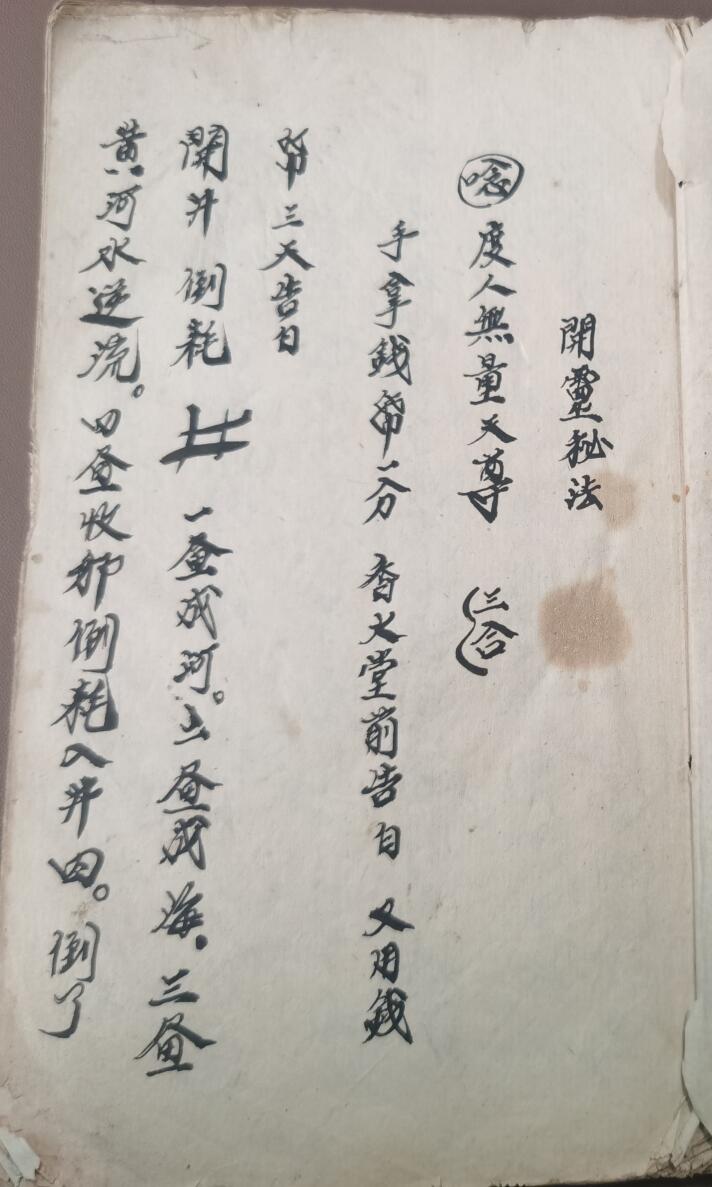 開靈秘法
唸 度人無量天尊 (三合)
手拿錢幣一分 香火堂前告白 又用錢
幣三天告白
開井 倒耗 井 一畫成河。二畫成海。三畫
黄河水逆流。四畫收邪倒耗入井内。倒了